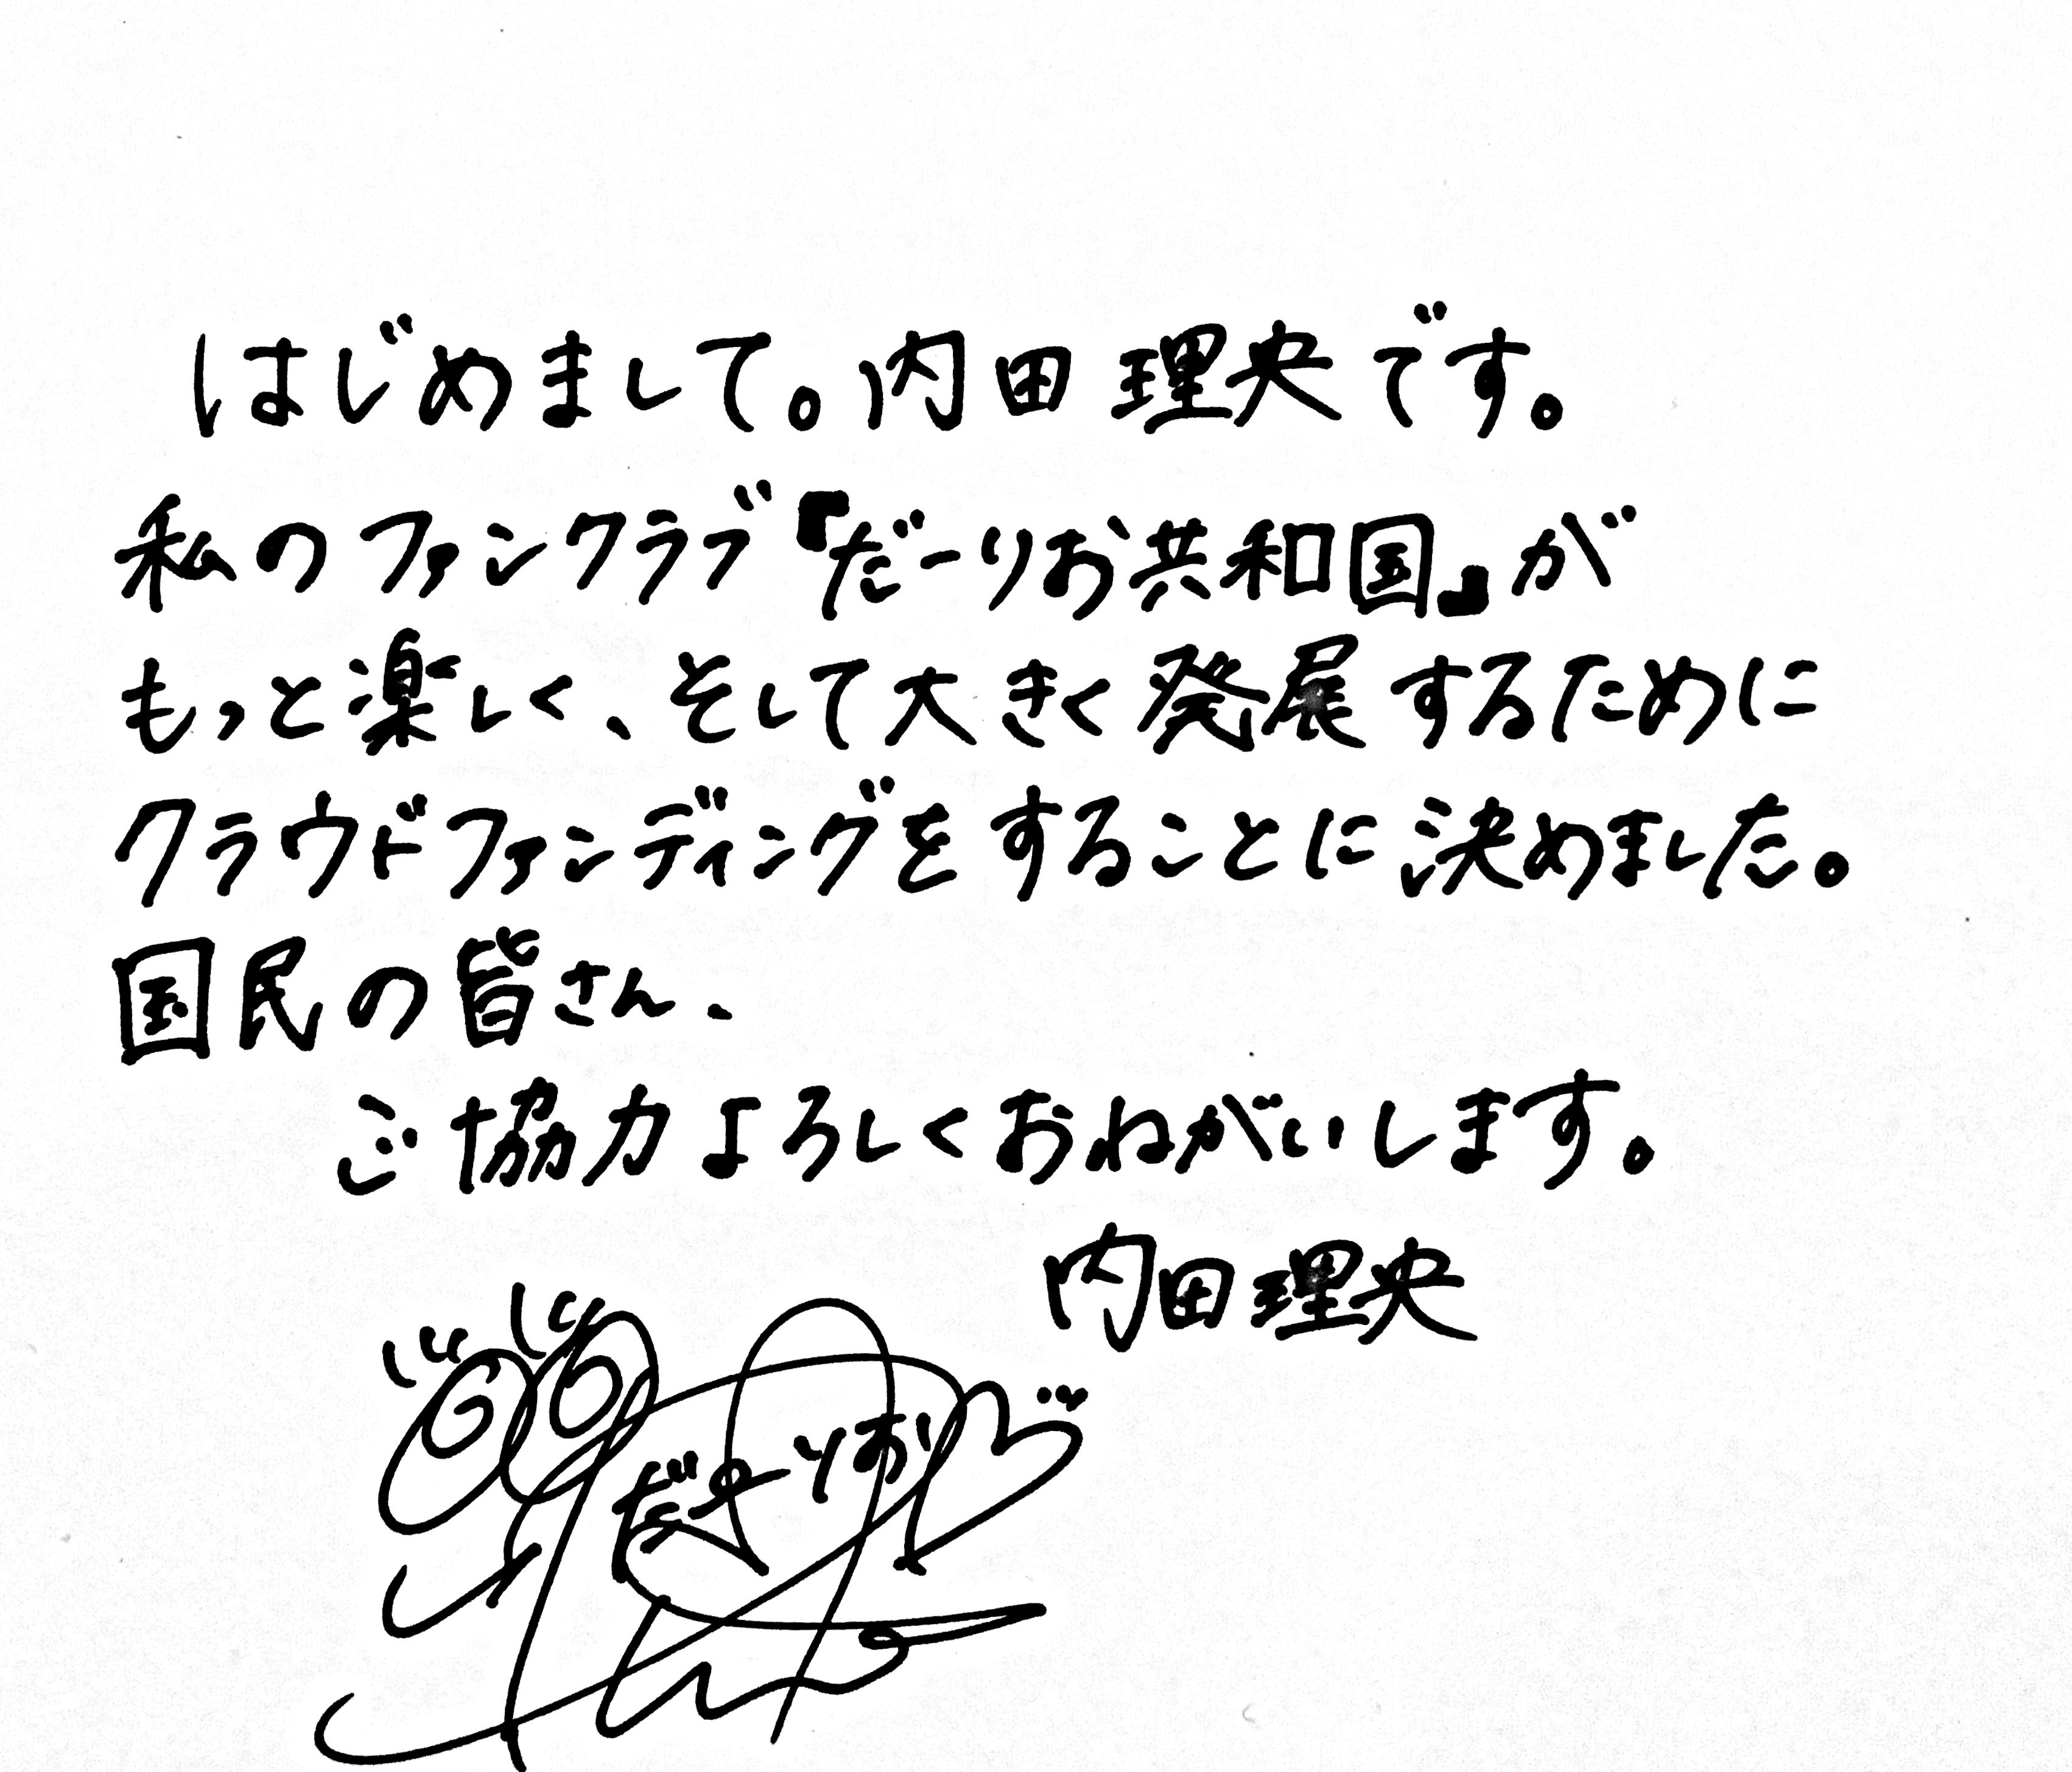 はじめまして。内田理央です。
私のファンクラブ『だーりお共和国』が
もっと楽しく、そして大きく発展するために
クラウドファンディングをすることに決めました。
国民の皆さん、
ご協力よろしくおねがいします。
内田理央